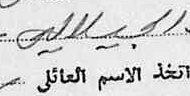 الجيلالي
اتخذ الاسم العائلي